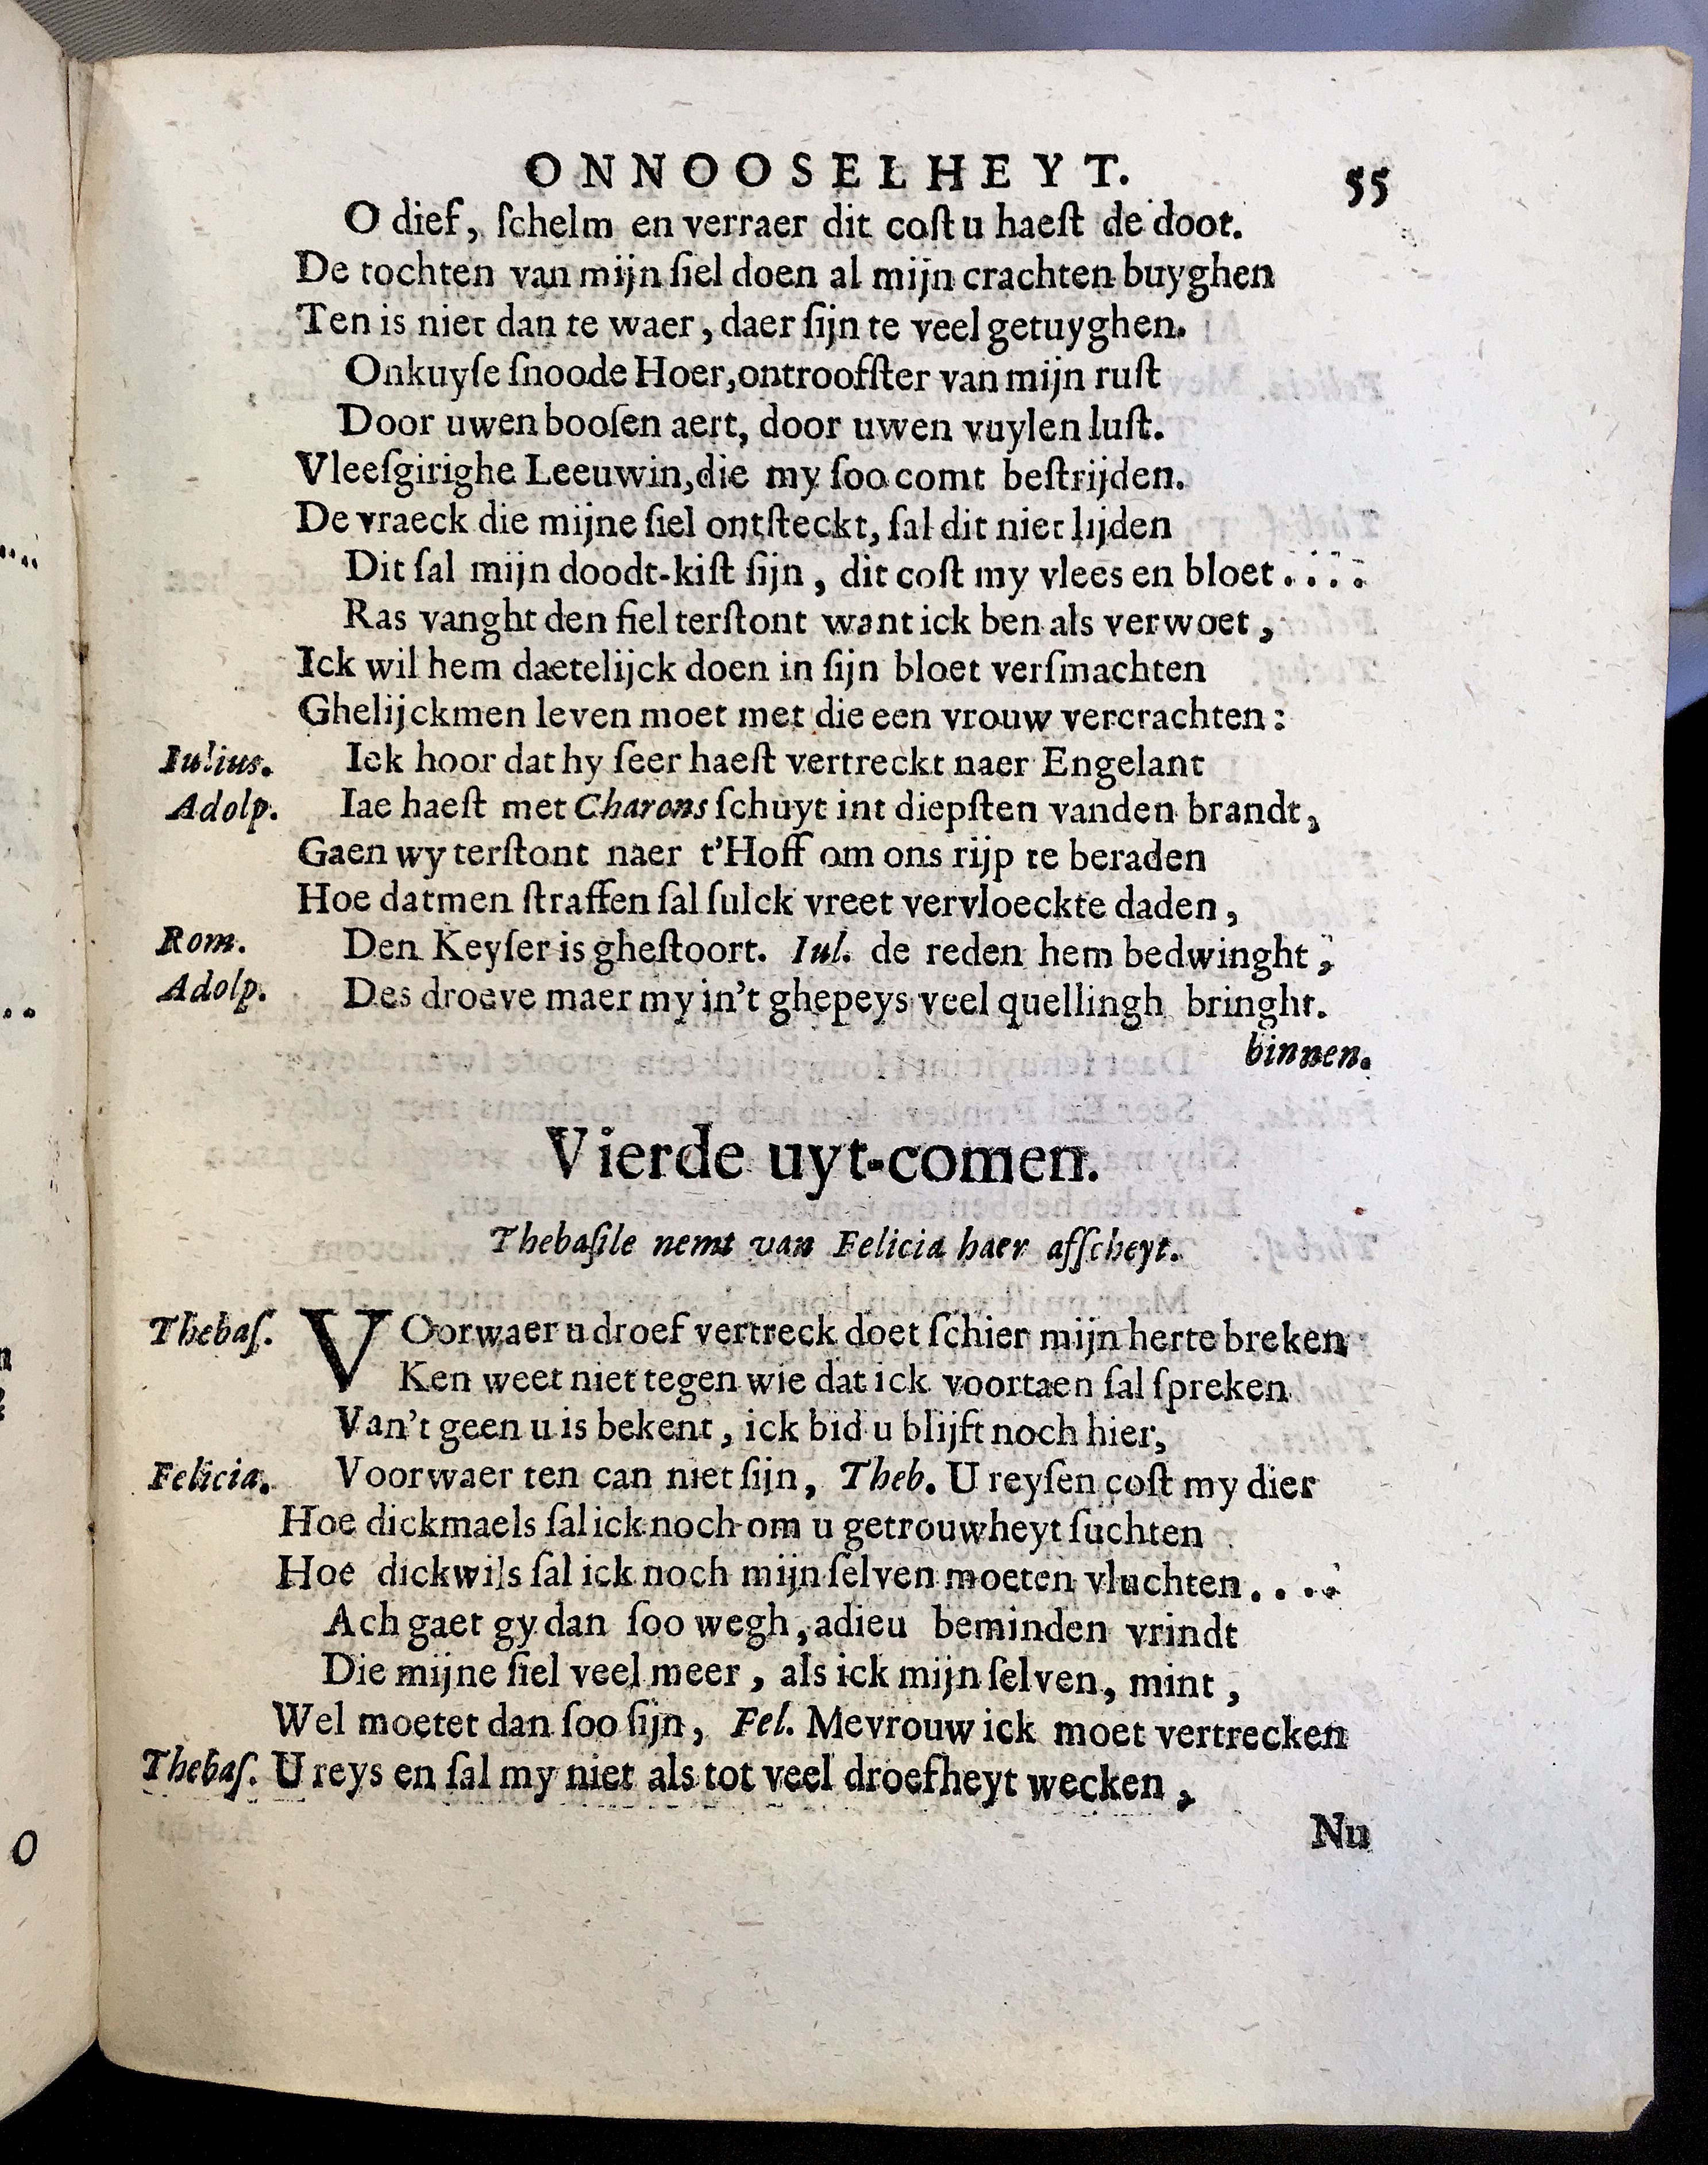 ONNOOSELHEYT. 55
O dief, ſchelm en verraer dit coſt u haeſt de doot.
De tochten van mijn ſiel doen al mijn crachten buyghen
Ten is niet dan te waer, daer ſijn te veel getuyghen.
Onkuyſe ſnoode Hoer, ontroofſter van mijn ruſt
Door uwen booſen aert, door uwen vuylen luſt.
Vleeſgirighe Leeuwin, die my ſoo comt beſtrijden.
De vraeck die mijne ſiel ontſteckt, ſal dit niet lijden
Dit ſal mijn doodt-kiſt ſijn, dit coſt my vlees en bloet....
Ras vanght den fiel terſtont want ick ben als verwoet,
Ick wil hem daetelijck doen in ſijn bloet verſmachten
Ghelijckmen leven moet met die een vrouw vercrachten:
Iulius. Ick hoor dat hy ſeer haeſt vertreckt naer Engelant
Adolp. Iae haeſt met Charons ſchuyt int diepſten vanden brandt,
Gaen wy terſtont naer t'Hoff om ons rijp te beraden
Hoe datmen ſtraffen ſal ſulck vreet vervloeckte daden,
Rom. Den Keyſer is gheſtoort. Iul. de reden hem bedwinght,
Adolp. Des droeve maer my in't ghepeys veel quellingh bringht.
binnen.
Vierde uyt-comen.
Thebaſile nemt van Felicia haer afſcheyt.
Thebaſ. VOorwaer u droef vertreck doet ſchier mijn herte breken
Ken weet niet tegen wie dat ick voortaen ſal ſpreken
Van't geen u is bekent, ick bid u blijft noch hier,
Felicia. Voorwaer ten can niet ſijn, Theb. U reyſen coſt my dier
Hoe dickmaels ſal ick noch om u getrouwheyt ſuchten
Hoe dickwils ſal ick noch mijn ſelven moeten vluchten....
Ach gaet gy dan ſoo wegh, adieu beminden vrindt
Die mijne ſiel veel meer, als ick mijn ſelven, mint,
Wel moetet dan ſoo ſijn, Fel. Mevrouw ick moet vertrecken
Thebaſ. U reys en ſal my niet als tot veel droefheyt wecken,
Nu
O